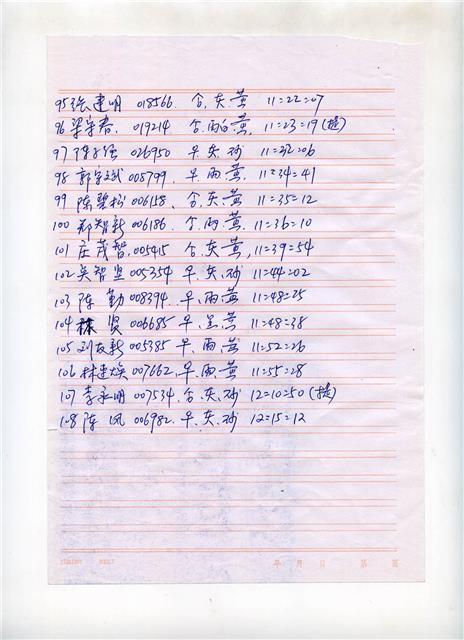 95 张建明 018566. 合.灰.黄 11=22=07
96 梁宇春. 019214 合.雨白黄, 11=23=19(挂)
97 026950 早.灰.砂 11=32=06
98 郭宇斌 005799. 早.雨黄. 11=34=41
99 陈碧松 006158. 合.灰黄 11=35=12
100 郑智新 006186. 合.雨.黄. 11=36=10
101 庄茂智.005415 合.灰黄,11=39=54
102 吴智坚 005354 早.灰.砂 11=44=02
103 陈勤 008394. 早.雨黄 11=48=25
104 林贤 006685 早.呈.黄 11=48=38
105 刘友新 005385 早.雨.黄 11=52=26
106 林建焕 007662.早.雨.黄 11=55=28
107 李永明 007534.合.灰.砂 12=10=50(挂)
108 陈凤 006982.早.灰.砂 12=15=12
年 月 日 第 页